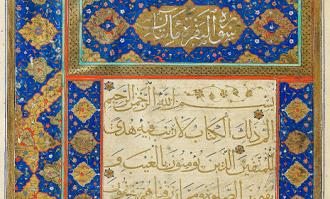 سورة البقرة
بسم الله الرحمن الرحيم
الم ذلك الكتاب لا ريب فيه هدى
للمتقين الذين يؤمنون بالغيب و
يقيمون الصلوة ومما رزقناهم ينفقون